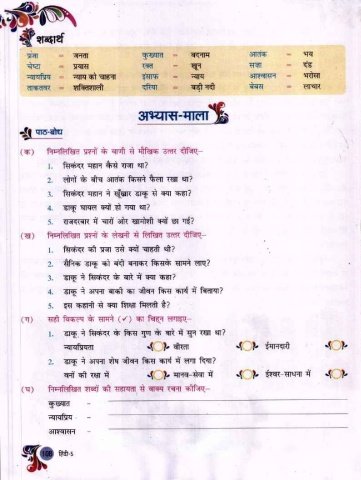 शब्दार्थ
प्रजा = जनता कुख्यात = बदनाम आतंक = भय
चेष्टा = प्रयास रक्त = खून सजा = दंड
न्यायप्रिय = न्याय को चाहना इंसाफ = न्याय आश्वासन = भरोसा
ताकतवर = शक्तिशाली दरिया = बड़ी नदी बेबस = लाचार
अभ्यास-माला
पाठ-बोध
(क) निम्नलिखित प्रश्नों के वाणी से मौखिक उत्तर दीजिए-
1. सिकंदर महान कैसे राजा था?
2. लोगों के बीच आतंक किसने फैला रखा था?
3. सिकंदर महान ने खूँखार डाकू से क्या कहा?
4. डाकू घायल क्यों हो गया था?
5. राजदरबार में चारों ओर खामोशी क्यों छा गई?
(ख) निम्नलिखित प्रश्नों के लेखनी से लिखित उत्तर दीजिए-
1. सिकंदर की प्रजा उसे क्यों चाहती थी?
2. सैनिक डाकू को बंदी बनाकर किसके सामने लाए?
3. डाकू ने सिकंदर के बारे में क्या कहा?
4. डाकू ने अपना बाकी का जीवन किस कार्य में बिताया?
5. इस कहानी से क्या शिक्षा मिलती है?
(ग) सही विकल्प के सामने (✓) का चिह्न लगाइए-
1. डाकू ने सिकंदर के किस गुण के बारे में सुन रखा था?
न्यायप्रियता वीरता ईमानदारी
2. डाकू ने अपना शेष जीवन किस कार्य में लगा दिया?
वनों की रखा में मानव-सेवा में ईश्वर-साधना में
(घ) निम्नलिखित शब्दों की सहायता से वाक्य रचना कीजिए-
कुख्यात -
न्यायप्रिय -
आश्वासन -
108 हिंदी-5